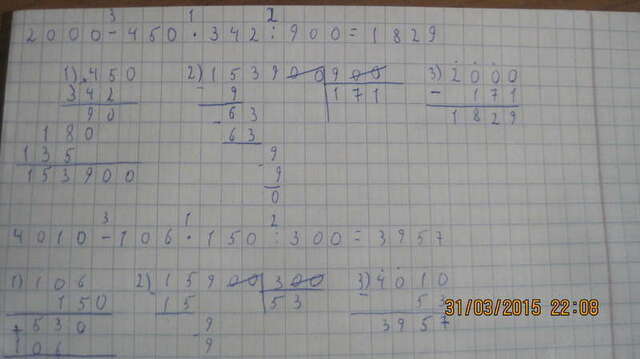 3 1 2
2000-450·342:900=1829
1) 450 2) 153900 900 3) 2000
342 - 9 171 - 171
90 - 63 1829
180 63
135 - 9
153900 9
0
3 1 2
4010-106·150:300=3957
1) 106 2) 15900 300 3) 4010
150 - 15 53 - 53
+ 530 - 9 3957
106 9
31/03/2015 22:08